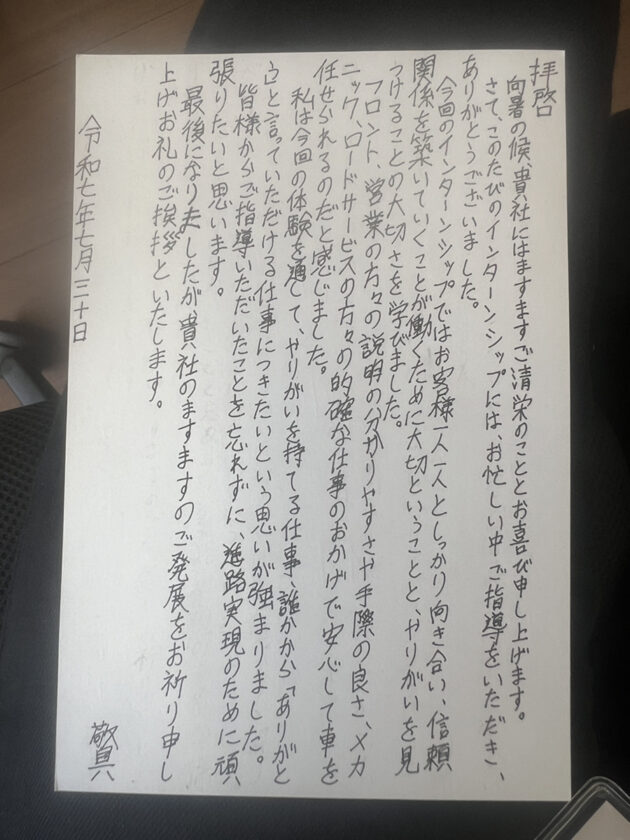 拝啓
向暑の候、貴社にはますますご清栄のこととお喜び申し上げます。
さて、このたびのインターンシップには、お忙しい中ご指導をいただき、
ありがとうございました。
今回のインターンシップではお客様一人一人としっかり向き合い、信頼
関係を築いていくことが働くために大切ということと、やりがいを見
つけることの大切さを学びました。
フロント、営業の方々の説明の分かりやすさや手際の良さ、メカ
ニック、ロードサービスの方々の的確な仕事のおかげで安心して車を
任せられるのだと感じました。
私は今回の体験を通して、やりがいを持てる仕事、誰かから「ありがと
う」と言っていただける仕事につきたいという思いが強まりました。
皆様からご指導いただいたことを忘れずに、進路実現のために頑
張りたいと思います。
最後になりましたが、貴社のますますのご発展をお祈り申し
上げお礼のご挨拶といたします。
敬具
令和七年七月三十日